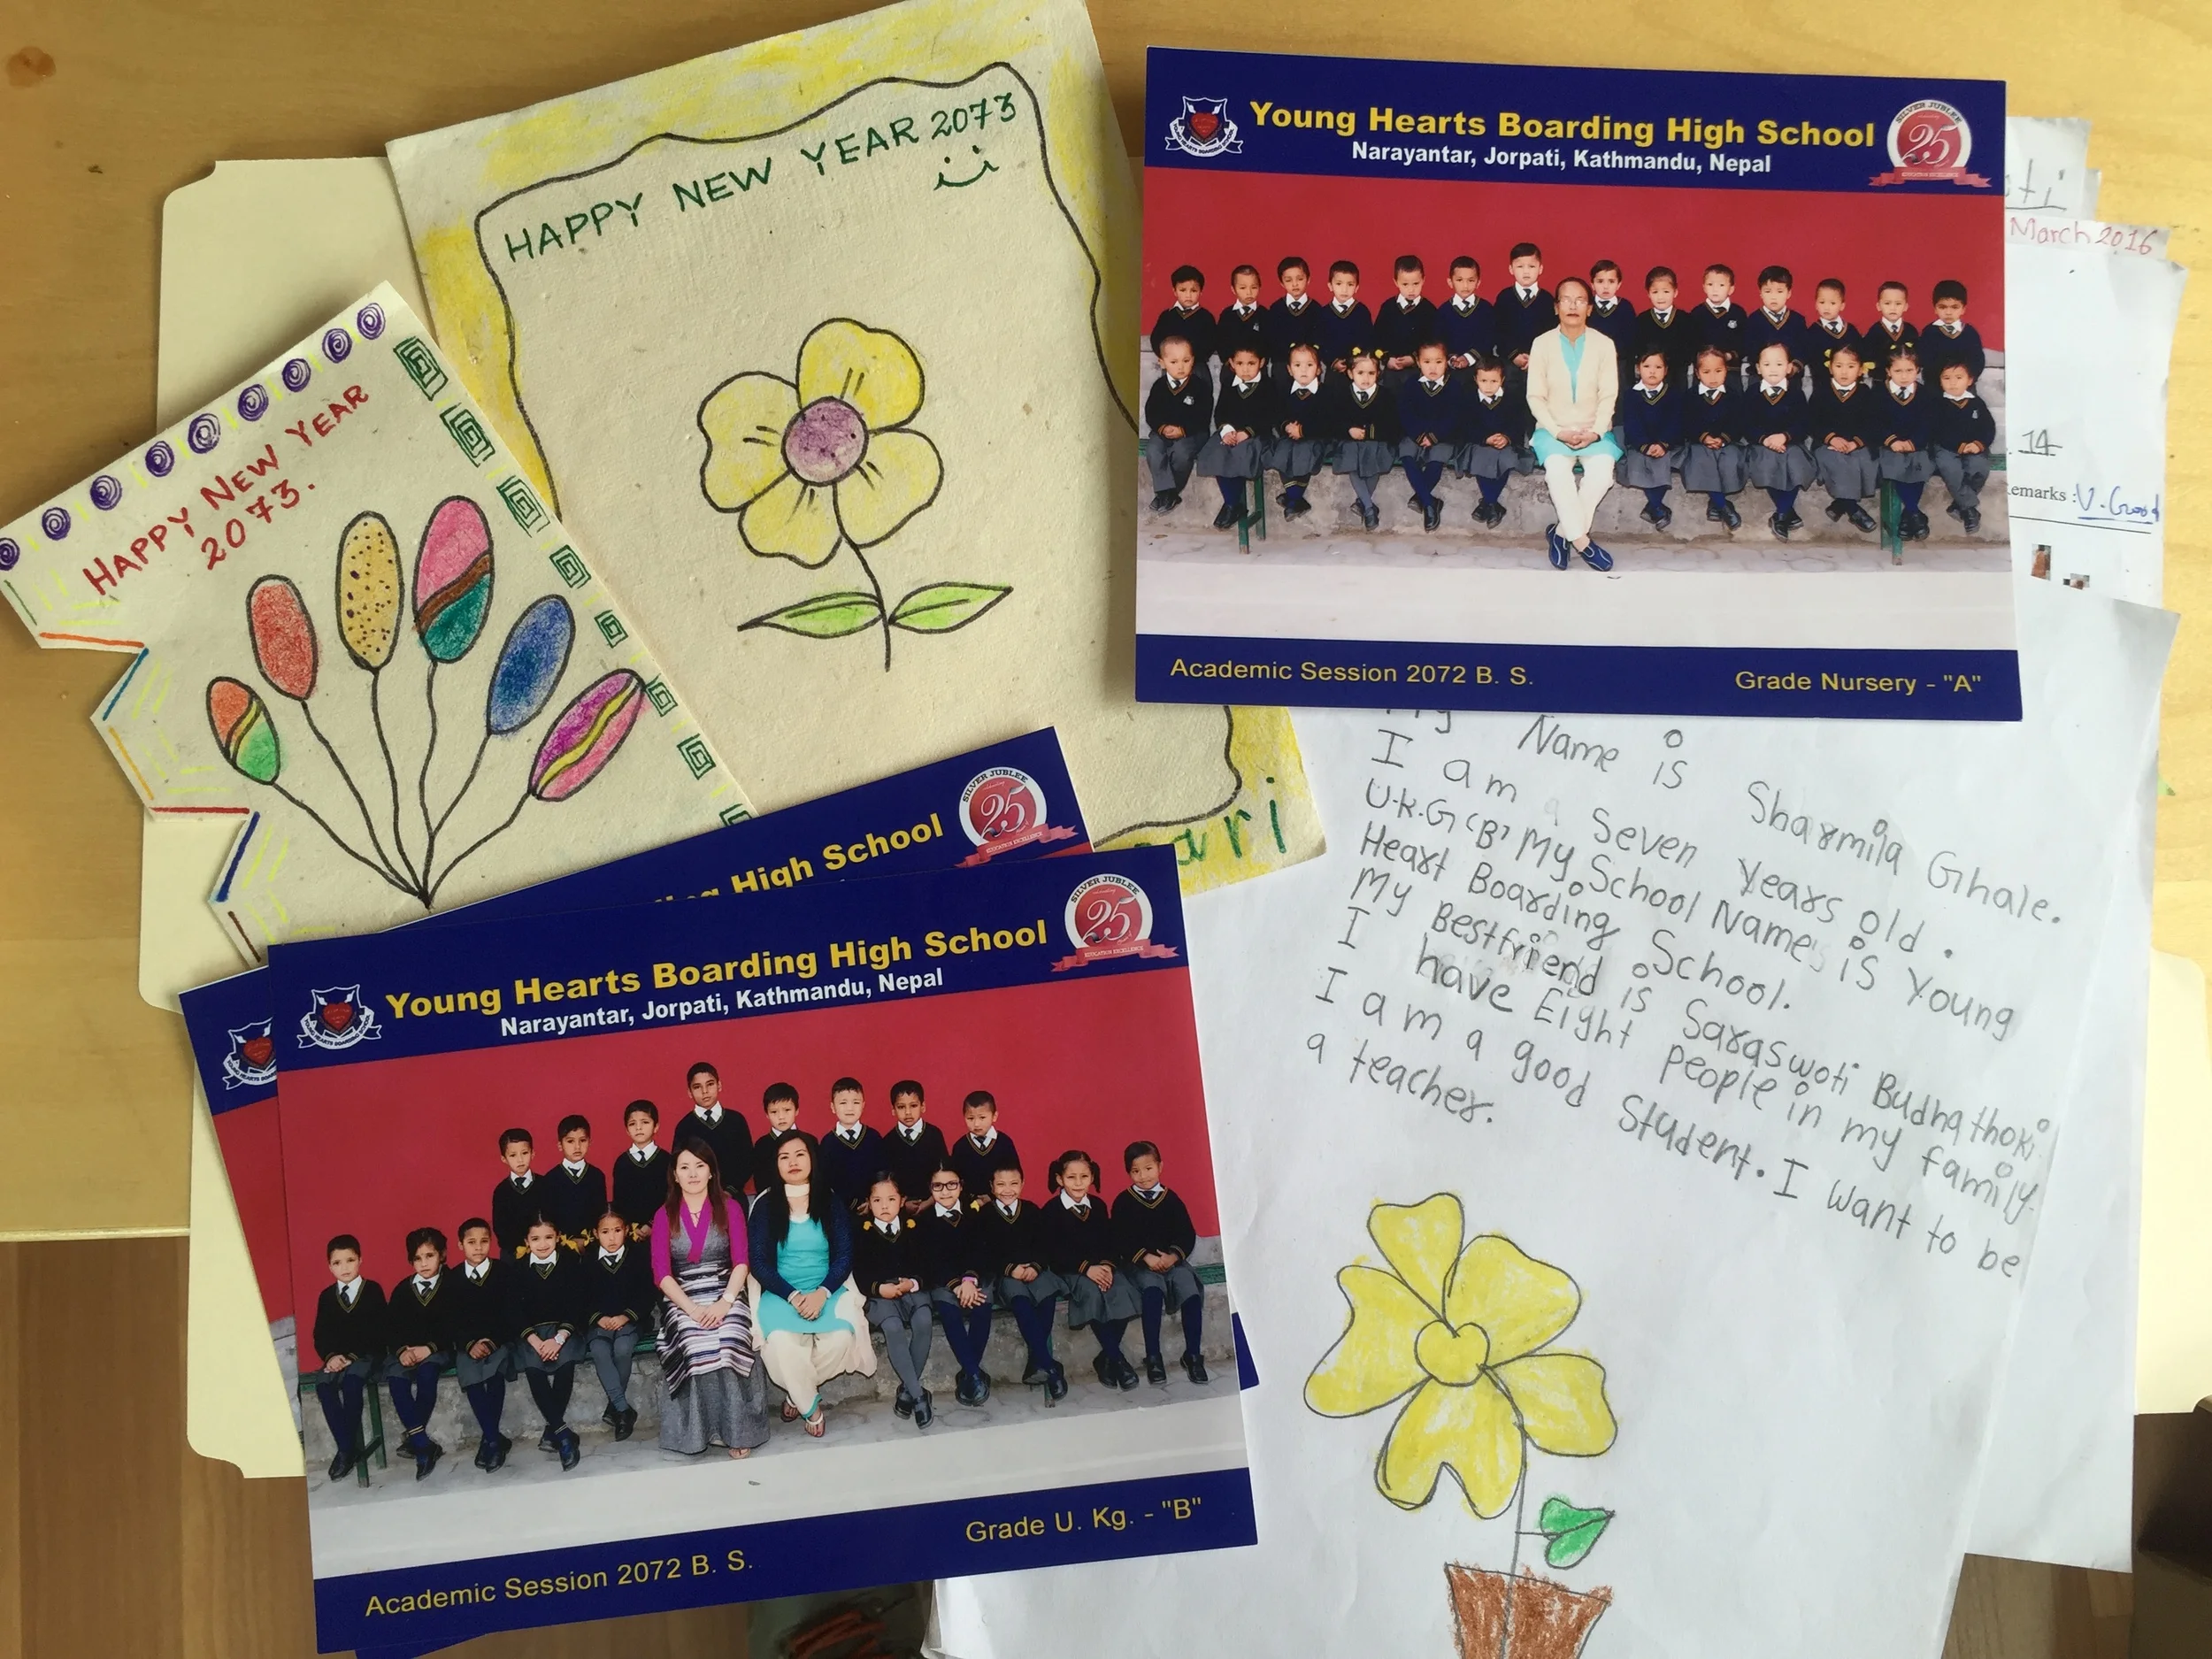 HAPPY NEW YEAR 2073
HAPPY NEW YEAR
2073.
ari
Young Hearts Boarding High School
Narayantar, Jorpati, Kathmandu, Nepal
SILVER JUBLEE
25
EDUCATION EXCELLENCE
Academic Session 2072 B. S.
Grade Nursery - "A"
ti
March 2016
14
emarks : V. Good
My Name is Sharmila Ghale.
I am a Seven Years old.
U.K.G 'B' My School Name's is Young
Heart Boarding School.
My Bestfriend is Saraswoti Budhathoki
I have Eight People in my family.
I am a good Student. I want to be
a teacher.
ng High School
SILVER JUBLEE
25
EDUCATION EXCELLENCE
Young Hearts Boarding High School
Narayantar, Jorpati, Kathmandu, Nepal
SILVER JUBLEE
25
EDUCATION EXCELLENCE
Academic Session 2072 B. S.
Grade U. Kg. - "B"